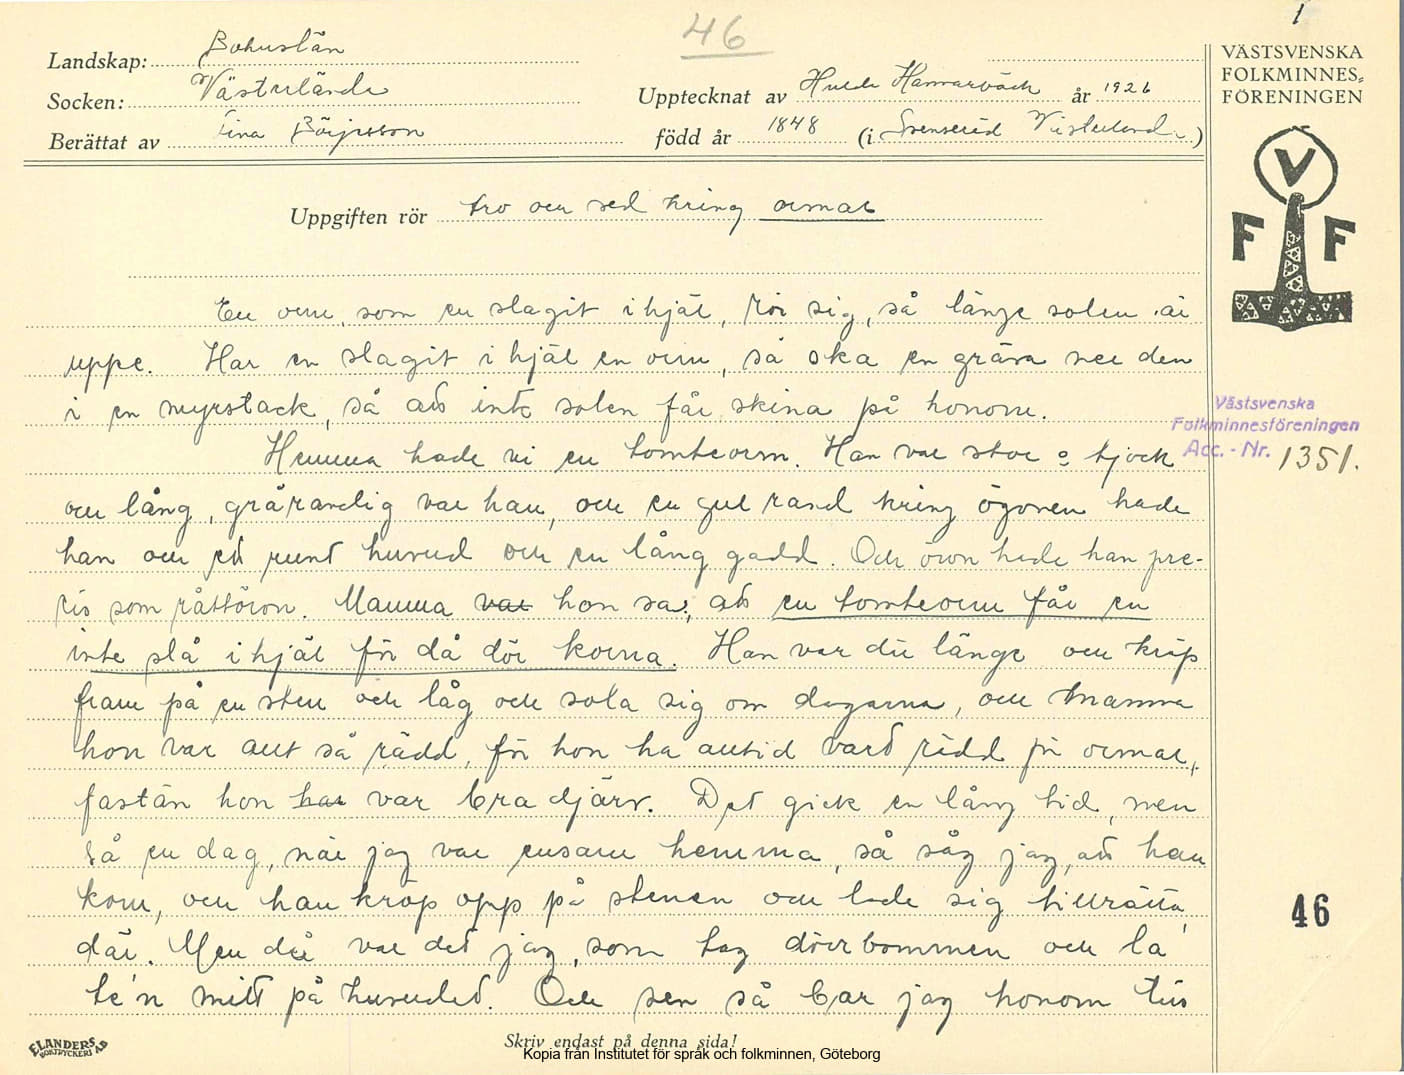 1
46
Landskap: Bohuslän
Socken: Västerlanda
Berättat av Tina Börjesson
Upptecknat av Hulda Hammarbäck år 1926
född år 1848 (i Svenseröd Västerlanda)
VÄSTSVENSKA
FOLKMINNES-
FÖRENINGEN
V
F F
Uppgiften rör tro och sed kring ormar
En orm, som en slagit ihjäl, rör sig, så länge solen är
uppe. Har en slagit ihjäl en orm, så ska en gräva ner den
i en myrstack, så att inte solen får skina på honom.
Västsvenska
Folkminnesföreningen
Acc. - Nr. 1351.
Hemma hade vi en tomteorm. Han var stor o tjock
och lång, gråranelig var han, och en gul rand kring ögonen hade
han och ett runt huvud och en lång gadd. Och öron hade han pre-
cis som råttöron. Mamma var hon sa, att en tomteorm får en
inte slå ihjäl för då dör korna. Han var där länge och kröp
fram på en sten och låg och sola sig om dagarna, och mamma
hon var allt så rädd, för hon ha alltid vart rädd för ormar,
fastän hon har var bra djärv. Det gick en lång tid, men
så en dag, när jag var ensam hemma, så såg jag, att han
kom, och han kröp opp på stenen och lade sig tillrätta
där. Men då var det jag, som tog dörrbommen och la
te'n mitt på huvudet. Och sen så bar jag honom till
46
ELANDERS
BOKTRYCKERI AB
Skriv endast på denna sida!
Kopia från Institutet för språk och folkminnen, Göteborg